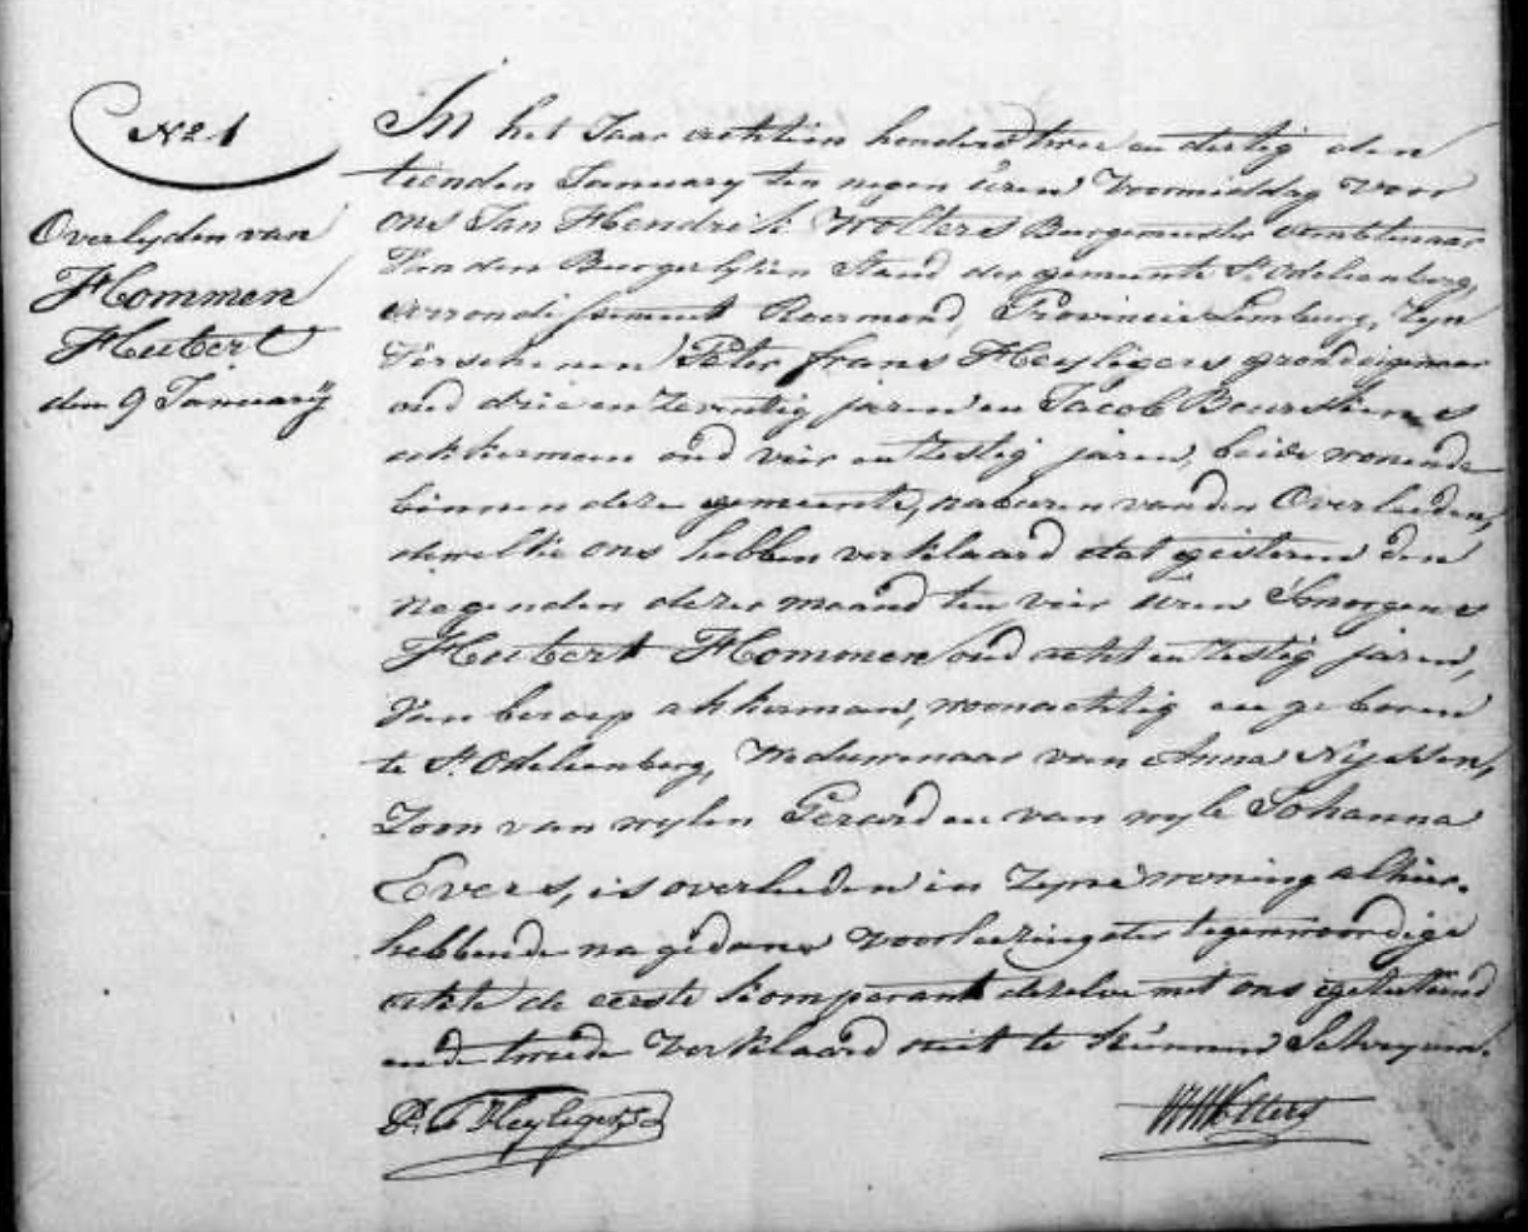 N° 1
Overlyden van
Hommen
Hubert
den 9 Januarij
In het Jaar achttien honderd twee en dertig den
tienden January ten negen uren Voormiddag Voor
ons Jan Hendrik Wolters Burgemeester ambtenaar
Van den Burgerlyken Stand der gemeente St Odelienberg,
arrondissement Roermond, Provincie Limburg, Zyn
Verschenen Peter frans Heyligers grondeigenaar
oud drie en Zeventig jaren en Jacob Beurskens
akkerman oud vier en Zestig jaren, beide wonende
binnen deze gemeente, naburen van den Overleeden,
dewelke ons hebben verklaard dat gisteren den
negenden dezer maand ten vier uren Smorgens
Hubert Hommen oud acht en Zestig jaren,
Van beroep akkerman, woonachtig en geboren
te St Odelienberg, Weduwenaar van Anna Nyssen,
Zoon van wylen Gerard en van wyle Johanna
Evers, is overleeden in Zyne woning alhier.
hebbende na gedane Voorleezing der tegenwoordige
akte de eerste komparant dezelve met ons geteekend
en de tweede Verklaard niet te kunnen Schryven.
P. F Heyligers
JHWolters